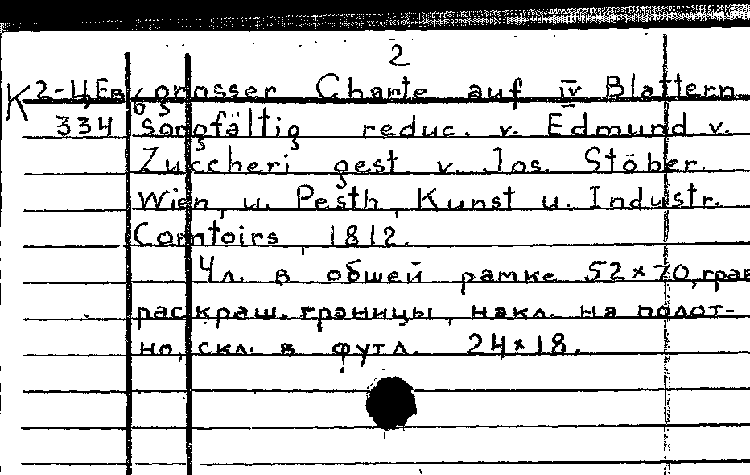 2
К 2-Ц,Ев grosser Charte auf IV Blättern
334 sorgfältig reduc. v. Edmund v.
Zuccheri gest v. Jos. Stöber.
Wien, u. Pesth, Kunst u. Industr.
Comtoirs, 1812.
4л. в общей рамке 52×70, грав
раскраш. границы, накл. на полот-
но, скл. в футл. 24×18.